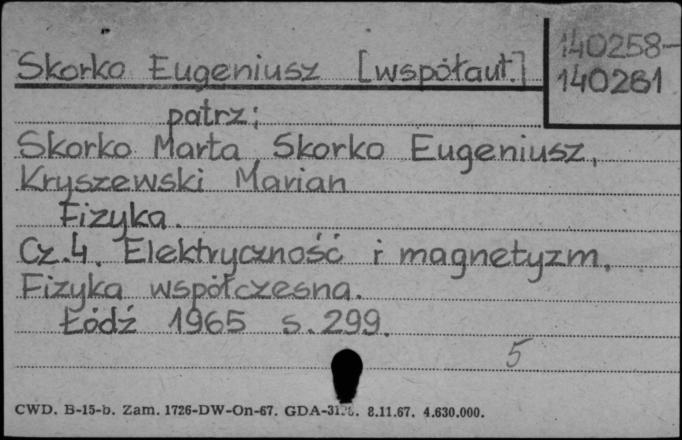 140258-
Skorko Eugeniusz [współaut.]
140261
patrz:
Skorko Marta Skorko Eugeniusz,
Kryszewski Marian
Fizyka.
Cz.4. Elektryczność i magnetyzm.
Fizyka współczesna.
Łódź 1965 s.299.
5
CWD. B-15-b. Zam. 1726-DW-On-67. 8.11.67. 4.630.000.